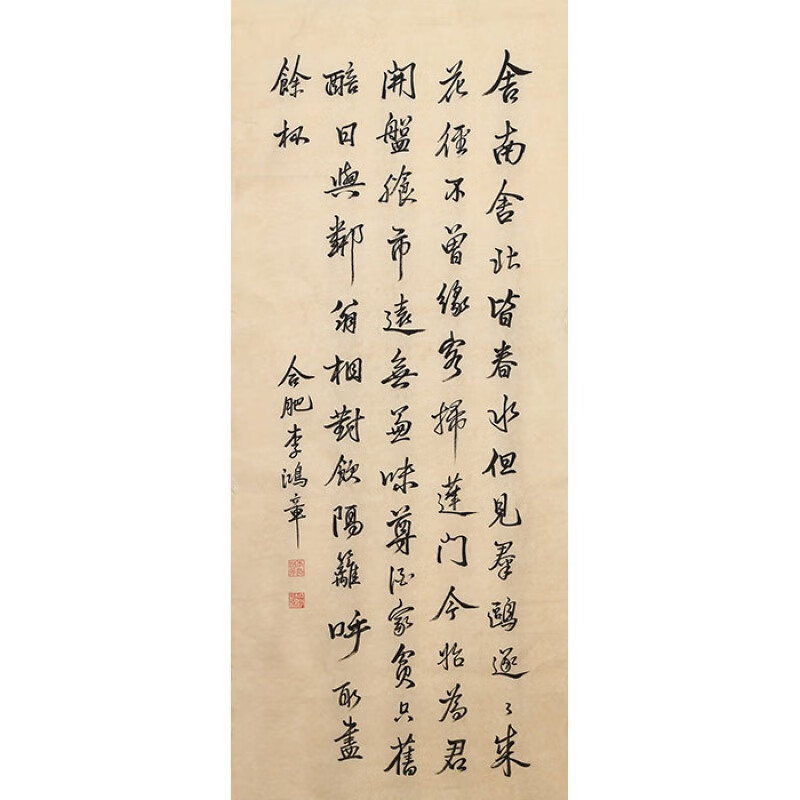 舍南舍北皆春水但見羣鷗逐〻來
花徑不曾緣客掃蓬門今始為君
開盤飱市遠無兼味尊酒家貧只舊
醅日與鄰翁相對飲隔籬呼取盡
餘杯
合肥李鴻章